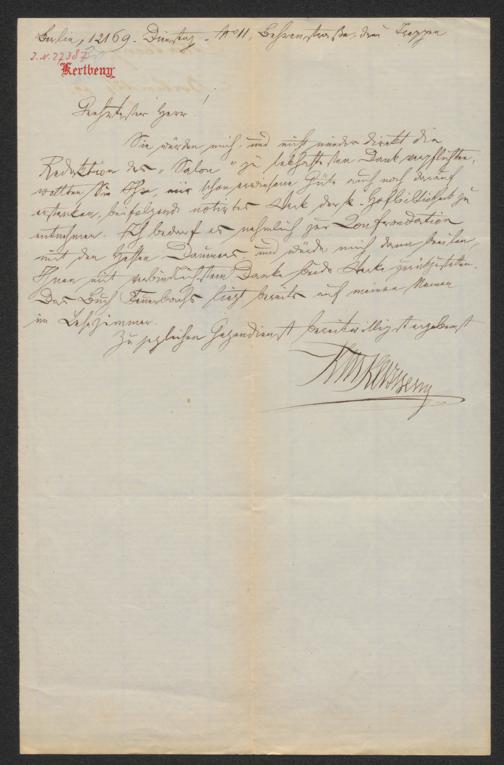 Berlin, 12 1 69. Dienstag. No 11, Behrenstraße, drei Treppen
J. N. 27387
Kertbeny
Geehrtester Herr!
Sie würden mich und nicht minder direkt die
Redaktion des „Salon“ zu lebhaftesten Dank verpflichten,
wollten Sie Ihre, mir schon erwiesene Güte auch noch darauf
erstrecken, beifolgend notirtes Werk der k. Hofbibliothek zu
entnehmen. Ich bedarf es nehmlich zur Confrontation
mit den Daumers und würde mich dann beeilen,
Ihnen mit verbindlichstem Danke beide Werke zurückzustellen.
Das Buch Feuerbachs liegt bereits auf meinen Namen
im Lesezimmer.
Zu jeglichen Gegendienst bereitwilligst ergebenst
Kertbeny